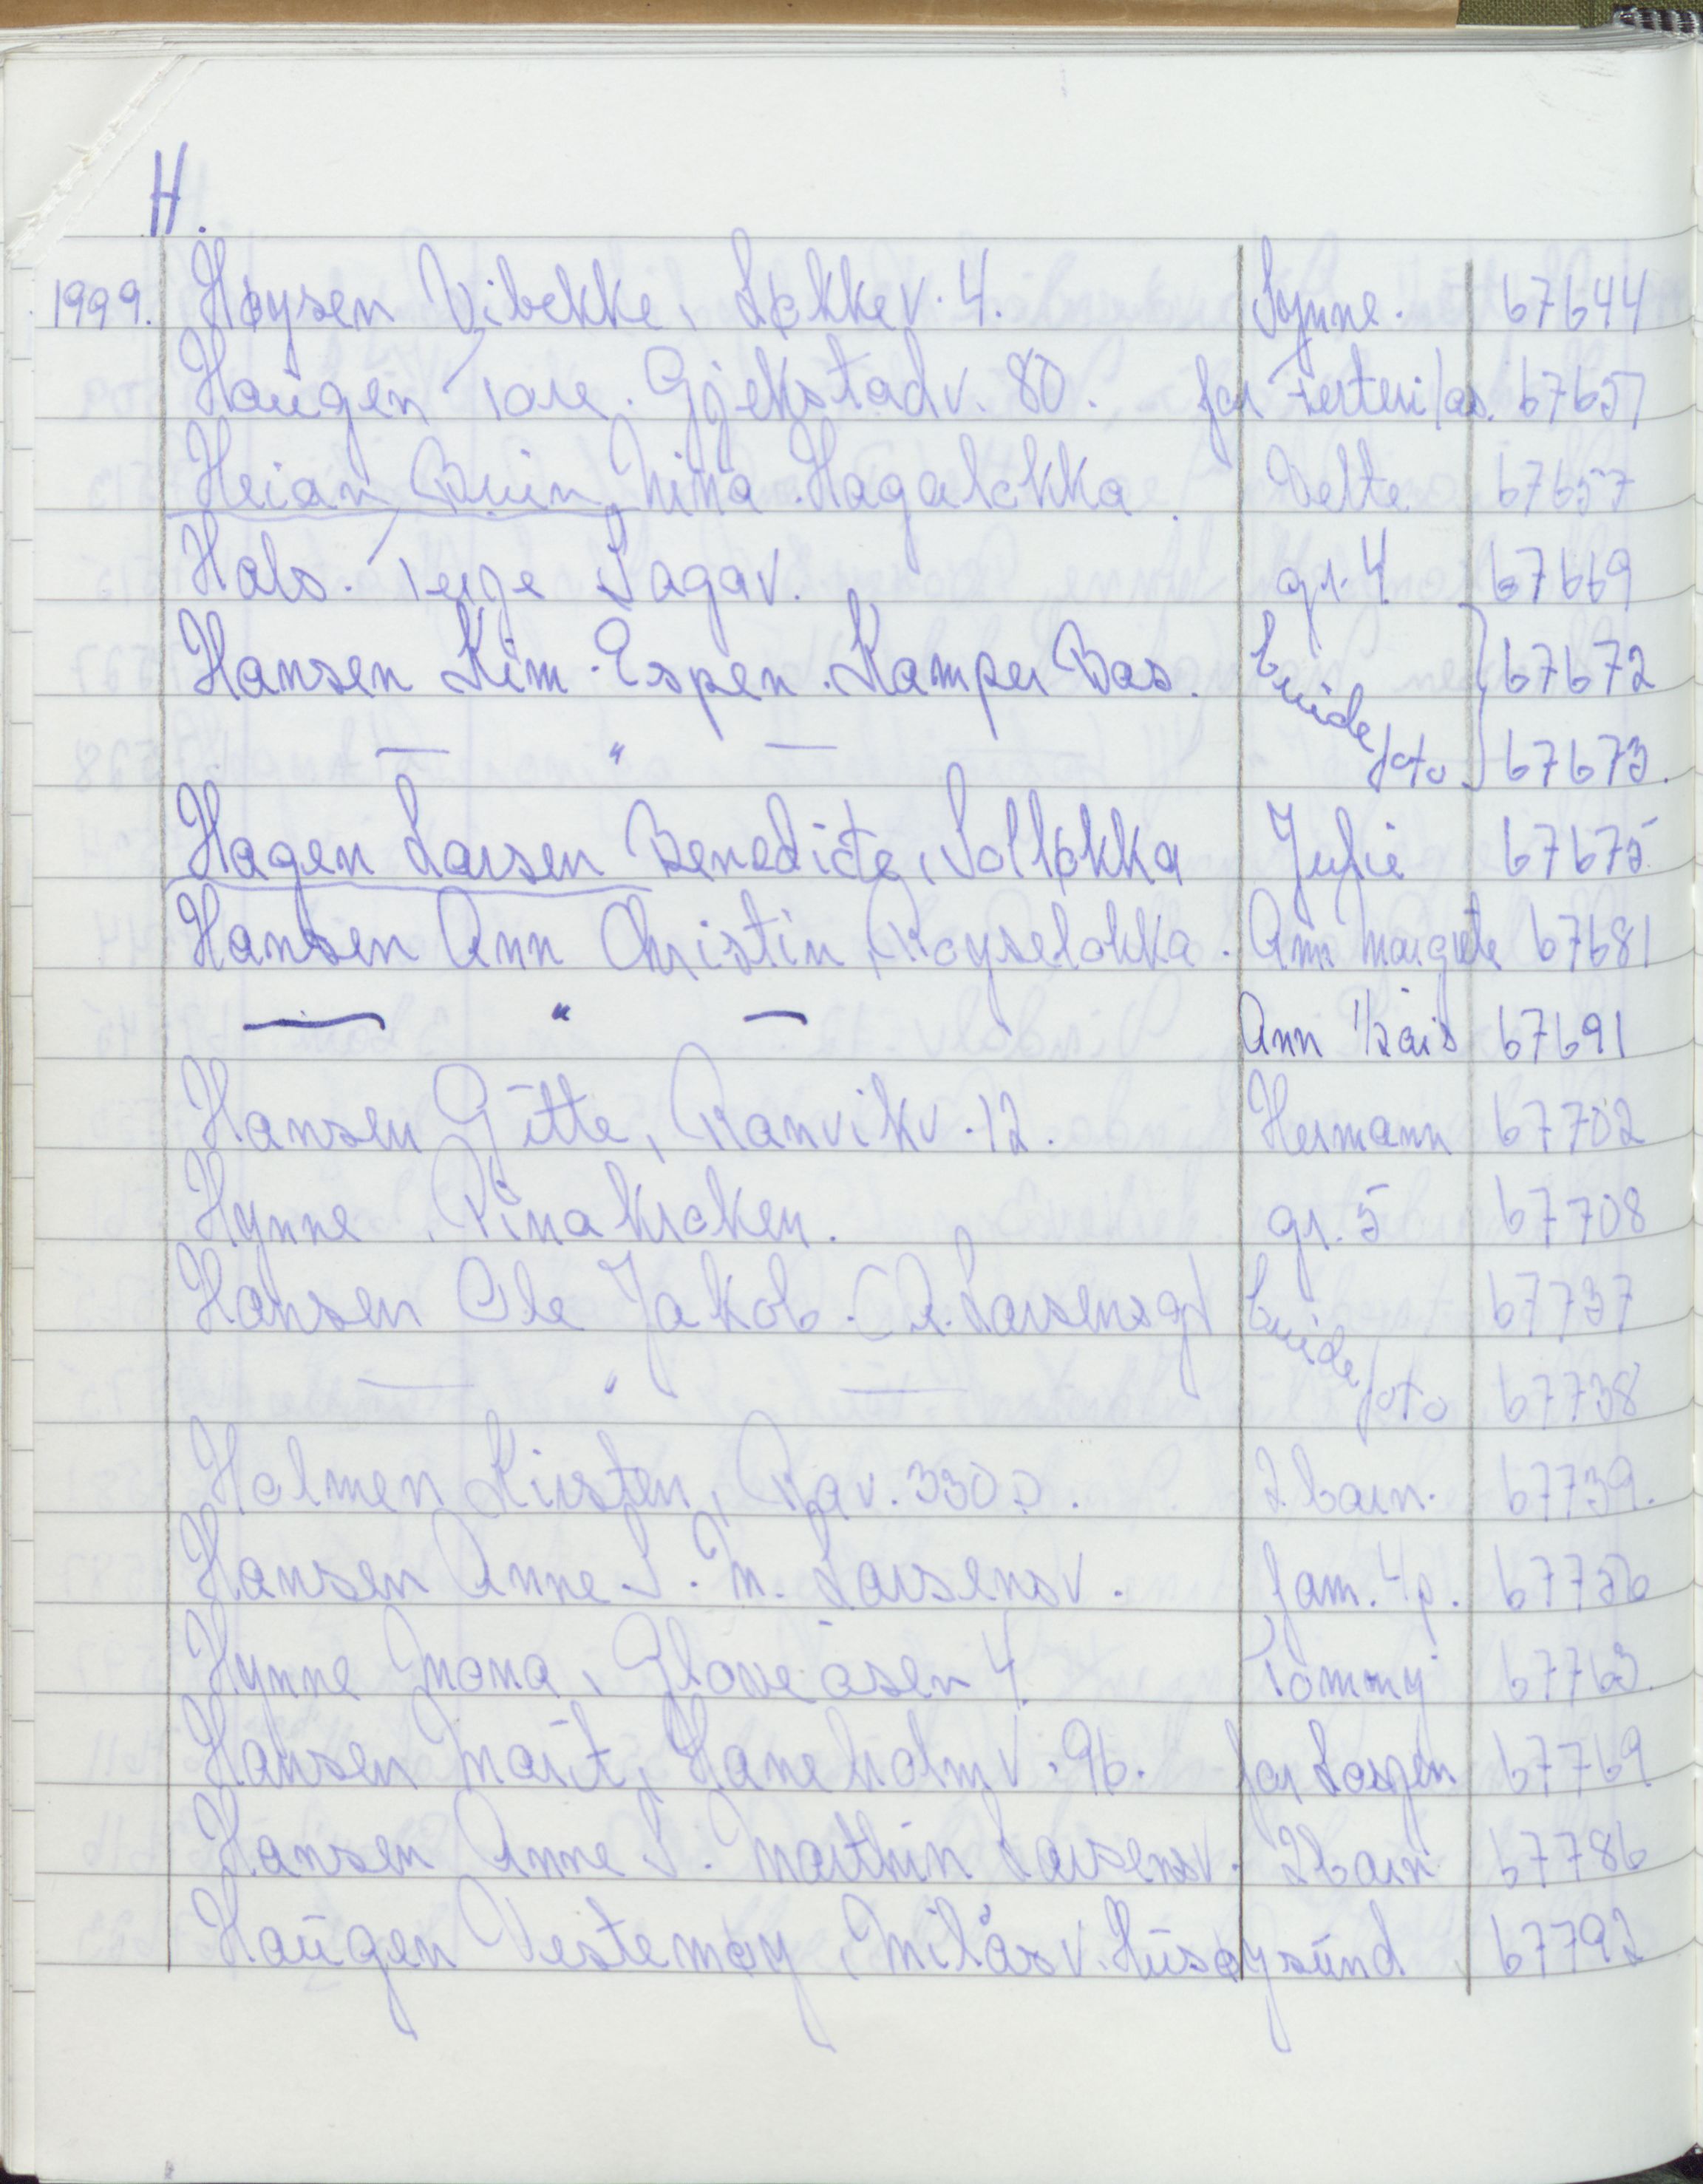 H.
1999. Høysen Vibekke, Løkkev. 4. Synne. 67644
Haugen Tore. Gjekstadv. 80. for 67651
Heian Bruin, Nina. Hagaløkka. Vette 67657
Hals. Terje Sagav. gr. 4 67669
Hansen Kim. Espen. Kamper Bas. brude 67672
— " — foto 67673.
Hagen Larsen Benedicte, Solløkka Julie 67675
Hansen Ann Christin, Røyseløkka. Ann Margrete 67681
— " — Ann 1/2 års 67691
Hansen Gitte, Ranvikv. 12. Hermann 67702
Hynne. Pinakroken. gr. 5 67708
Hansen Ole Jakob. O.A. Larsensgt brude 67737
— " — foto 67738
Holmen Kirsten, Rav. 330 2 barn. 67739.
Hansen Anne S. M. Larsensv. fam. 4 p. 67756
Hynne Mona, Gloveåsen 4. Tommy 67763.
Hansen Marit, Haneholmv. 96. for 67769
Hansen Anne S. Marthin Larsensv. 2 barn 67786
Haugen Vestemøy, Milåsv. Husøysund 67792